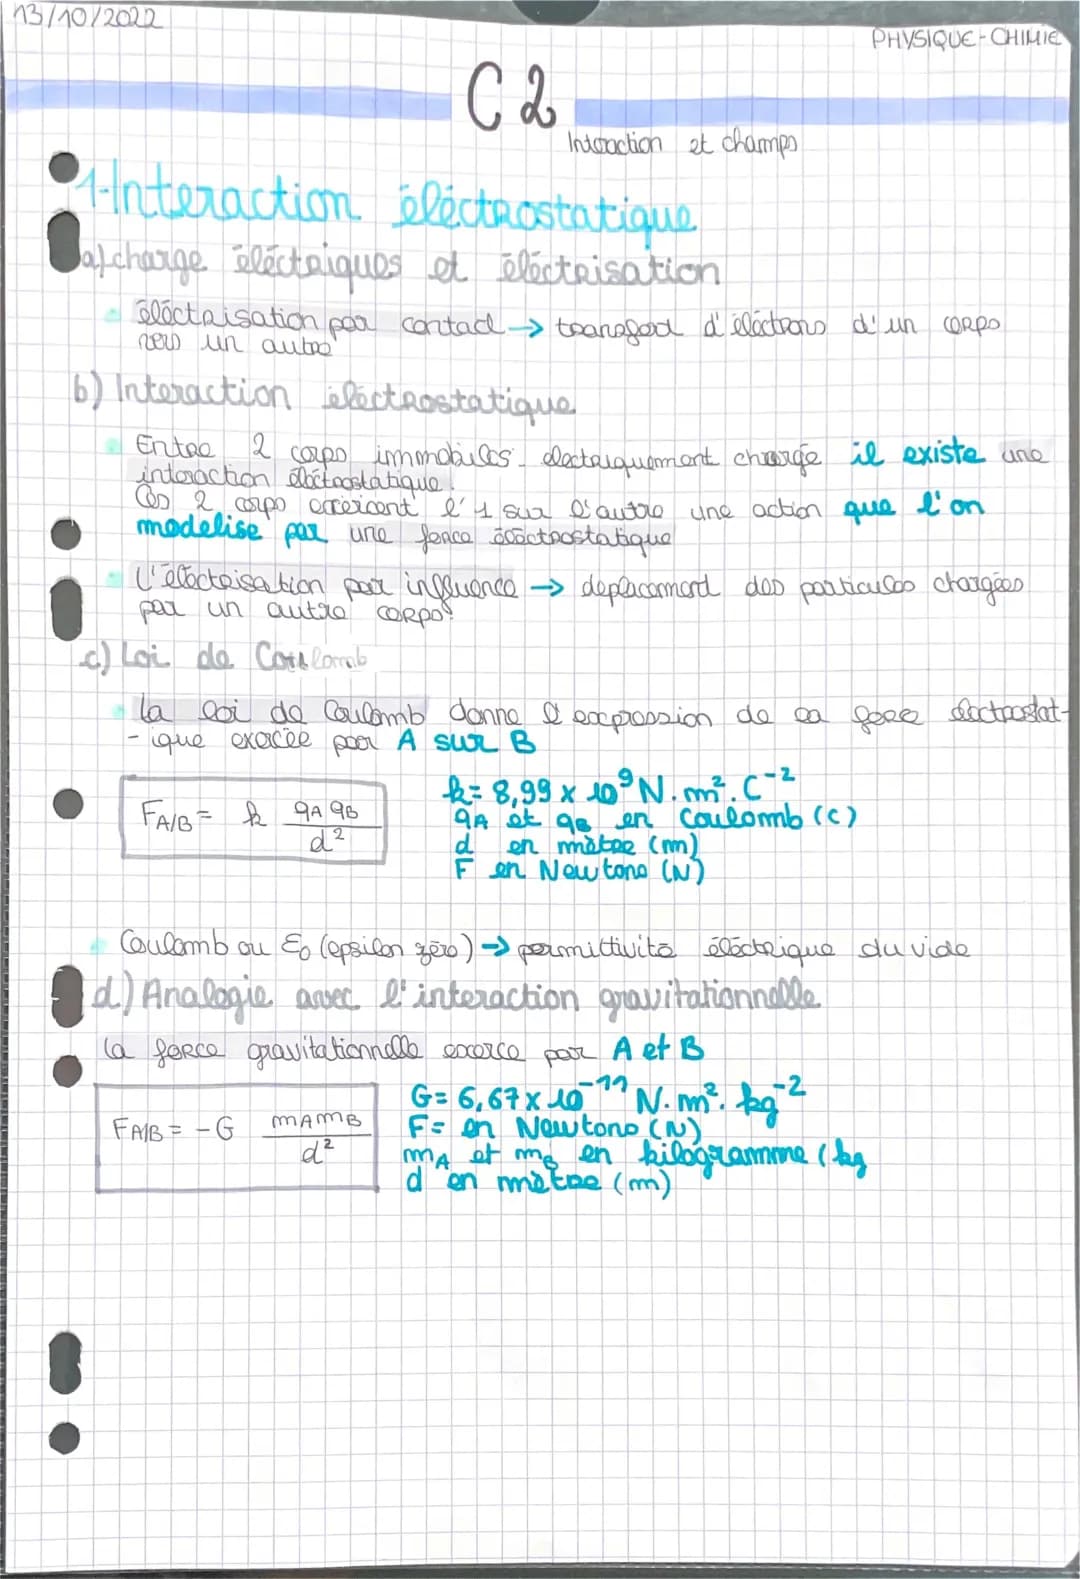 13/10/2022
PHYSIQUE-CHIMIE
C2
Interaction et champs
1-Interaction éléctrostatique
a) charge éléctriques et éléctrisation
éléctrisation par contact → transfert d'éléctrons d'un corps
vers un autre
b) Interaction éléctrostatique
Entre 2 corps immobiles electriquement chargé il existe une
interaction éléctrostatique.
Ces 2 corps exercent l'1 sur l'autre une action que l'on
modelise par une force éléctrostatique
L'électrisation par influence → deplacement des particules chargées
par un autre corps.
c) Loi de Coulomb
la loi de Coulomb donne l'expression de la force électrostat-
-ique exercée par A sur B
FA/B = k qA qB / d²
k = 8,99 x 10⁹ N.m².C⁻²
qA et qB en Coulomb (C)
d en mètre (m)
F en Newtons (N)
Coulomb ou ε₀ (epsilon zéro) → permittivité éléctrique du vide
d.) Analogie avec l'interaction gravitationnelle
la force gravitationnelle exerce par A et B
FA/B = -G mAmB / d²
G = 6,67 x 10⁻¹¹ N.m².kg⁻²
F = en Newtons (N)
mA et mB en kilogramme (kg
d en mètre (m)